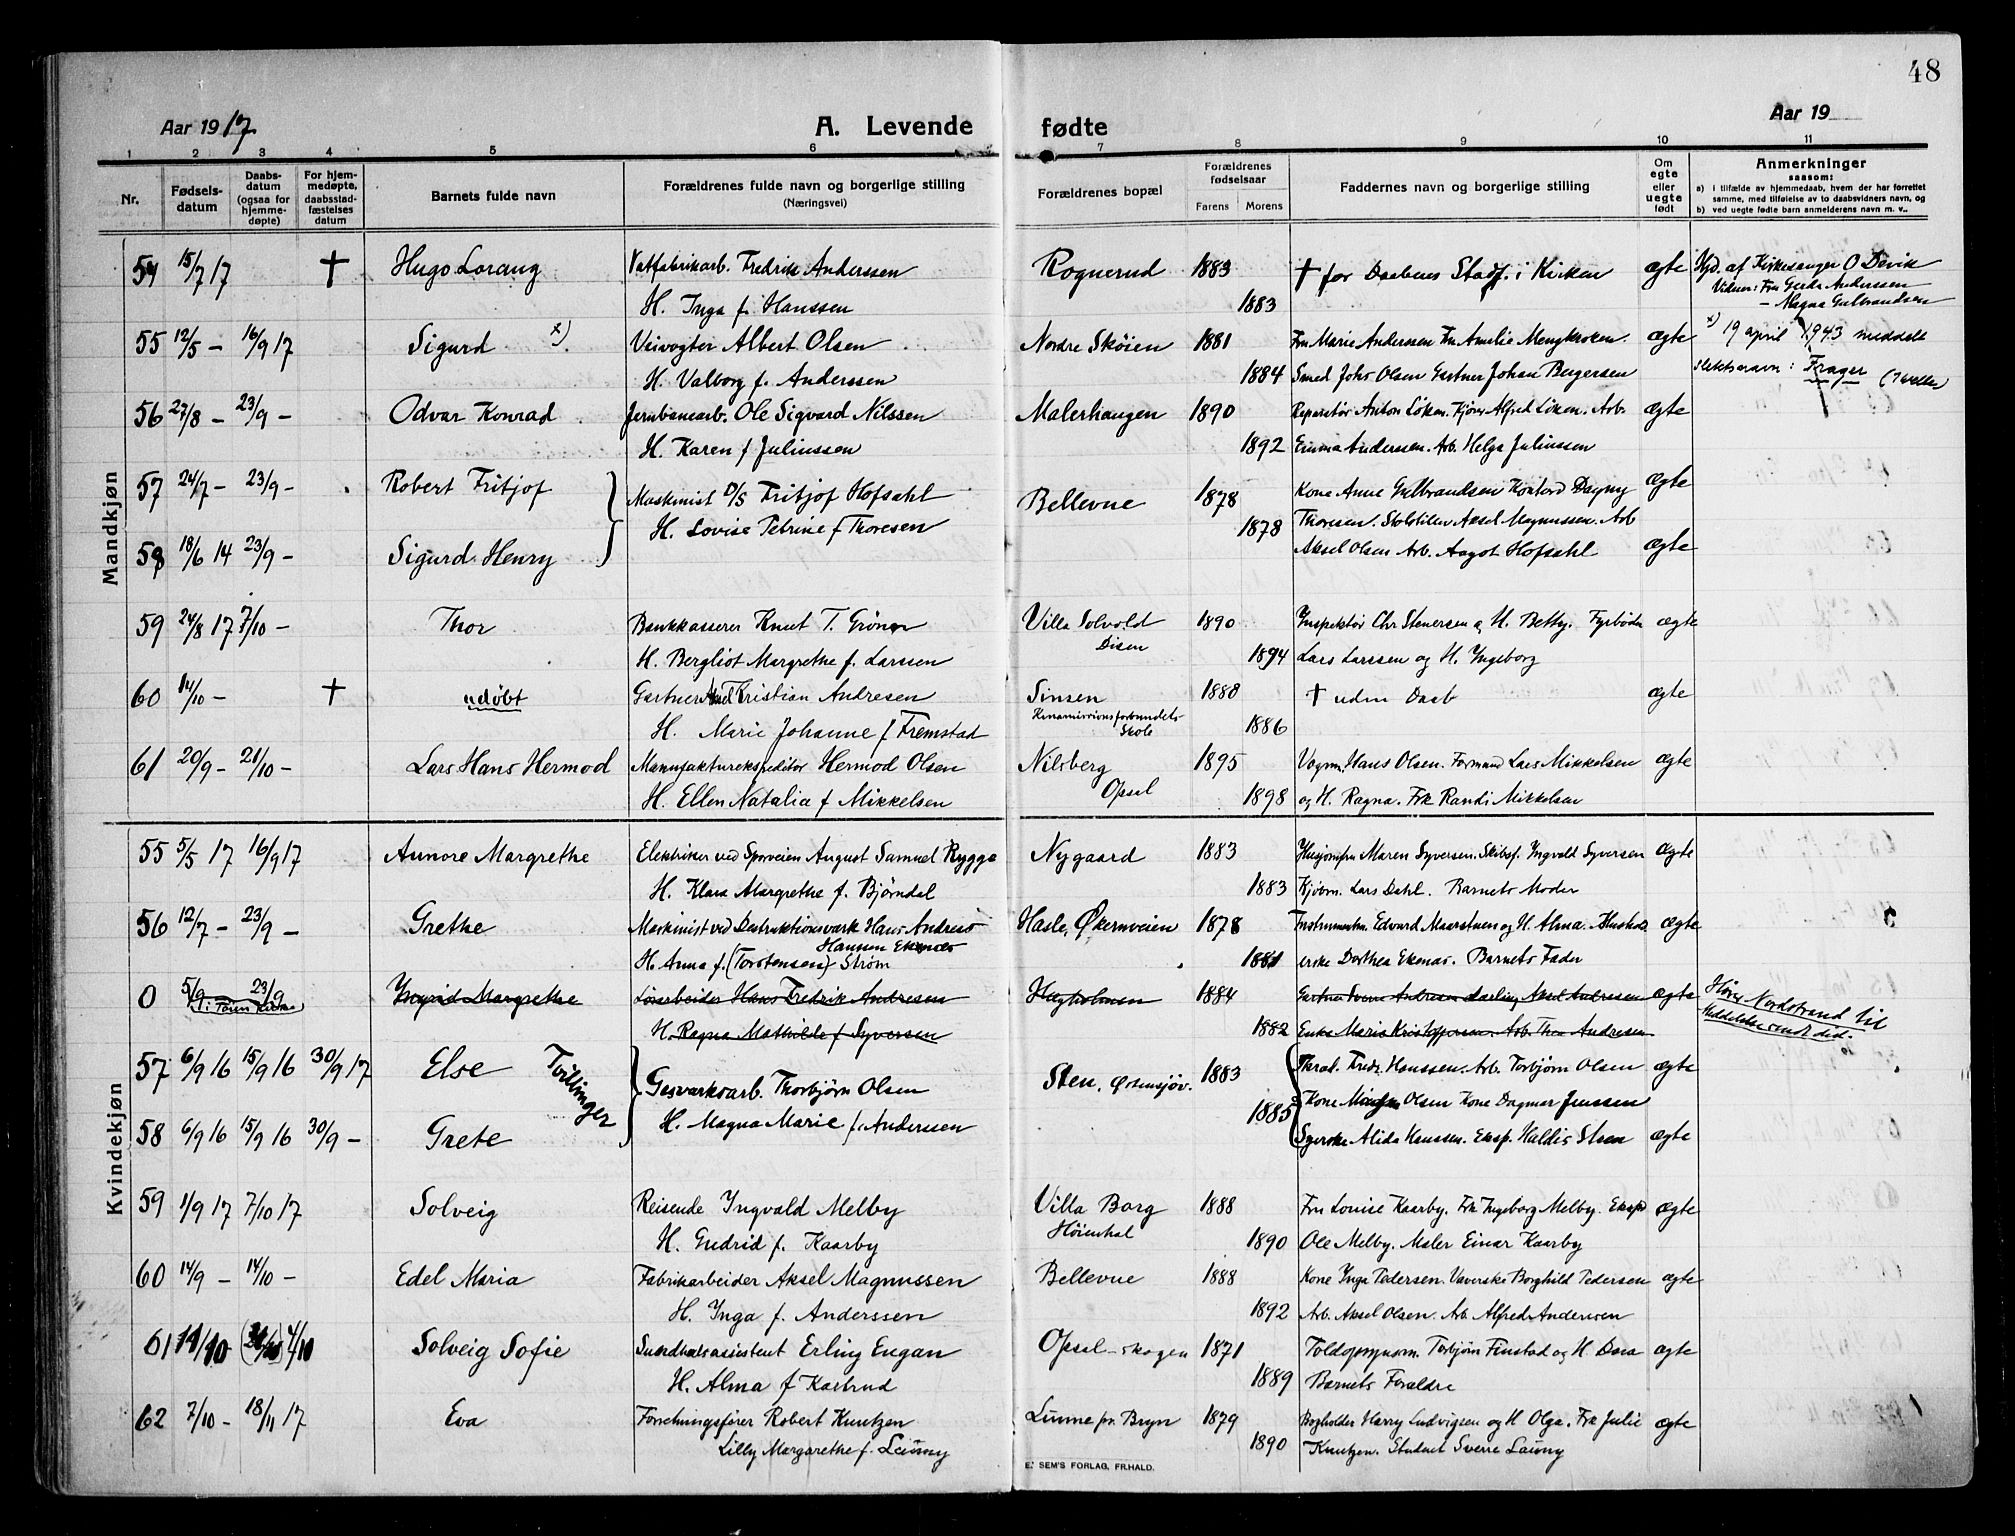 48
Aar 1917.
A. Levende fødte
Aar 19
1 2 3 4 5 6 7 8 9 10 11
Nr.
Fødsels-
datum
Daabs-
datum
(ogsaa for
hjemme-
døpte)
For hjem-
medøpte,
daabsstad-
fæstelses
datum
Barnets fulde navn
Forældrenes fulde navn og borgerlige stilling
(Næringsvei)
Forældrenes bopæl
Forældrenes
fødselsaar
Farens Morens
Faddernes navn og borgerlige stilling
Om
egte
eller
uegte
født
Anmerkninger
saasom:
a) i tilfælde av hjemmedaab, hvem der har forrettet
samme, med tilføielse av to daabsvidners navn, og
b) ved uegte fødte barn anmelderens navn m. v..
Mandkjøn
54 15/7 17 † Hugo Lorang Vatfabrikarb. Fredrik Anderssen Rognerud 1883 † før Daabens Stadf. i Kirken ægte Hjd. af Kirkesanger O Devik
Vidner: Fru Gerda Anderssen
H. Inga f. Hanssen 1883 – Magna Gulbrandsen
55 12/5 – 16/9 17 Sigurd x) Veivogter Albert Olsen Nordre Skøien 1881 Fru Marie Anderssen Fru Amelie Mengkroken. ægte x) 19 april 1943 meddelt
H. Valborg f. Anderssen 1884 Smed Johs Olsen Gartner Johan Bergersen slektsnavn: Frager
56 27/8 – 23/9 – Odvar Konrad Jernbanearb. Ole Sigvard Nilssen Malerhaugen 1890 Reparatør Anton Løken. Kjører Alfred Løken. Arb. ægte
H. Karen f Juliussen 1892 Emma Anderssen. Arb. Helga Juliussen
57 24/7 – 23/9 – Robert Fritjof Maskinist D/S Fritjof Hofsahl Bellevue 1878 Kone Anne Gulbrandsen Kontord Dagny ægte
H. Lovise Petrine f Thoresen 1878 Thoresen. Aksel Magnussen. Arb
58 18/6 14 23/9 – Sigurd Henry Aksel Olsen Arb. Aagot Hofsahl ægte
59 24/8 17 7/10 – Thor Bankkasserer Knut T. Gröner Villa Solvold 1890 Inspektør Chr Stenersen og H. Betty. Fyrbøder ægte
H. Bergliot Margrethe f. Larssen Disen 1894 Lars Larssen og H. Ingeborg
60 14/10 – † udøbt Gartner Kristian Andresen Sinsen 1888 † uden Daab ægte
H. Marie Johanne f Fremstad Kinamissionsforbundets Skole 1886
61 20/9 – 21/10 – Lars Hans Hermod Manufakturekspeditør Hermod Olsen Nilsberg 1895 Vogm. Hans Olsen. Formand Lars Mikkelsen ægte
H. Ellen Natalia f Mikkelsen Opsal 1898 og H. Ragna. Frk Randi Mikkelsen
Kvindekjøn
55 5/5 17 16/9 17 Aunore Margrethe Elektriker ved Sporveien August Samuel Rygge Nygaard 1883 Husjomfru Maren Syversen. Skibsf. Ingvald Syversen ægte
H. Klara Margrethe f. Bjørndal 1883 Kjøbm. Lars Dahl. Barnets Moder
56 12/7 – 23/9 – Grethe Maskinist ved Destruktionsverk Hans Andreas Hasle, Økernveien 1878 Instrumentm. Edvard Maarstuen og H. Alma. Hushold- ægte
Hanssen Ekenæs
H. Anna f. (Torstensen) Strøm 1881 erske Dorthea Ekenæs. Barnets Fader
0 5/9 23/9 Ingrid Margrethe Løsarbeider Hans Fredrik Andresen Hegholmen 1884 Gartner Sverre Andresen Lærling Aksel Andresen ægte Hører Nordstrand til
(i: Tøien Kirke)
H. Ragna Mathilde f Syversen 1882 Enke Marie Kristoffersen. Arb. Thea Andresen Meddelelse sendt did.
57 6/9 16 15/9 16 30/9 17 Else Tvillinger Gasverksarb. Thorbjørn Olsen Sten, Østensjøv. 1883 Fredr. Hanssen. Arb. Torbjørn Olsen ægte
H. Magna Marie f. Anderssen 1885 Kone Olsen Kone Dagmar Jenssen
58 6/9 16 15/9 16 30/9 – Grete Syerske Alida Hanssen. Eksp. Haldis Steen ægte
59 1/9 17 7/10 17 Solveig Reisende Ingvald Melby Villa Borg 1888 Fru Louise Kaarby. Frk Ingeborg Melby. Eksp ægte
H. Gudrid f. Kaarby Høienhal 1890 Ole Melby. Maler Einar Kaarby
60 14/9 – 14/10 – Edel Maria Fabrikarbeider Aksel Magnussen Bellevue 1888 Kone Inga Pedersen. Væverske Borghild Pedersen ægte
H. Inga f. Anderssen 1892 Arb. Aksel Olsen. Arb Alfred Anderssen
61 11/10 4/10 Solveig Sofie Sundhedsassistent Erling Engan Opsal-skogen 1871 Toldopsynsm. Torbjørn Finstad og H. Dora ægte
H. Alma f Kastrud 1889 Barnets Forældre
62 7/10 – 18/11 17 Eva Forretningsfører Robert Knutzen Lunne pr. Bryn 1879 Bogholder Harry Ludvigsen og H Olga. Frk Julie ægte
Lilly Margarethe f. Launy 1890 Knutzen. Student Sverre Launy
E. SEM'S FORLAG, FR.HALD.